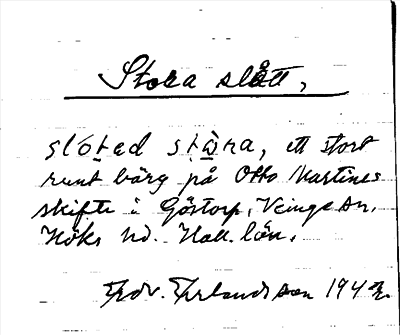 Stora slått,
slo̱ted sta̱ra, ett stort
runt bärg på Otto Martines
skifte i Göstorp, Veinge sn,
Höks hd. Hall. län.
Erlandsson 194